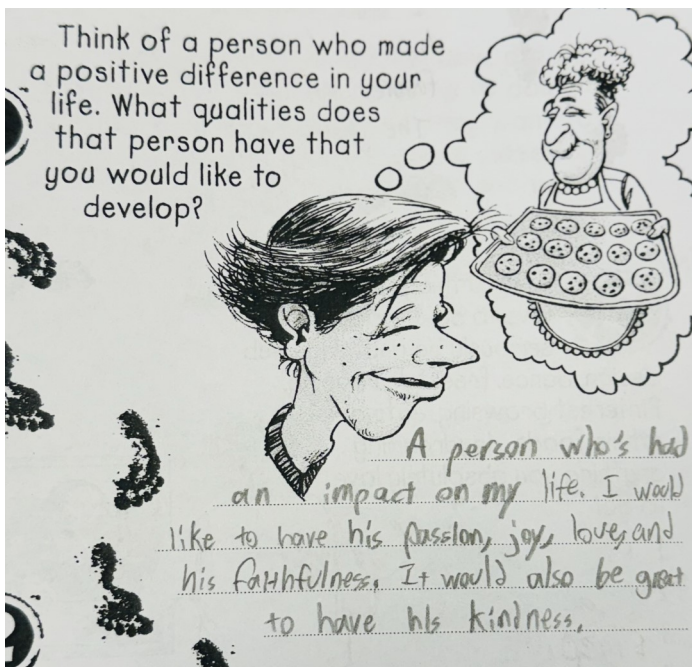 Think of a person who made
a positive difference in your
life. What qualities does
that person have that
you would like to
develop?
A person who's had
an impact on my life. I would
like to have his passion, joy, love, and
his faithfulness. It would also be great
to have his kindness.